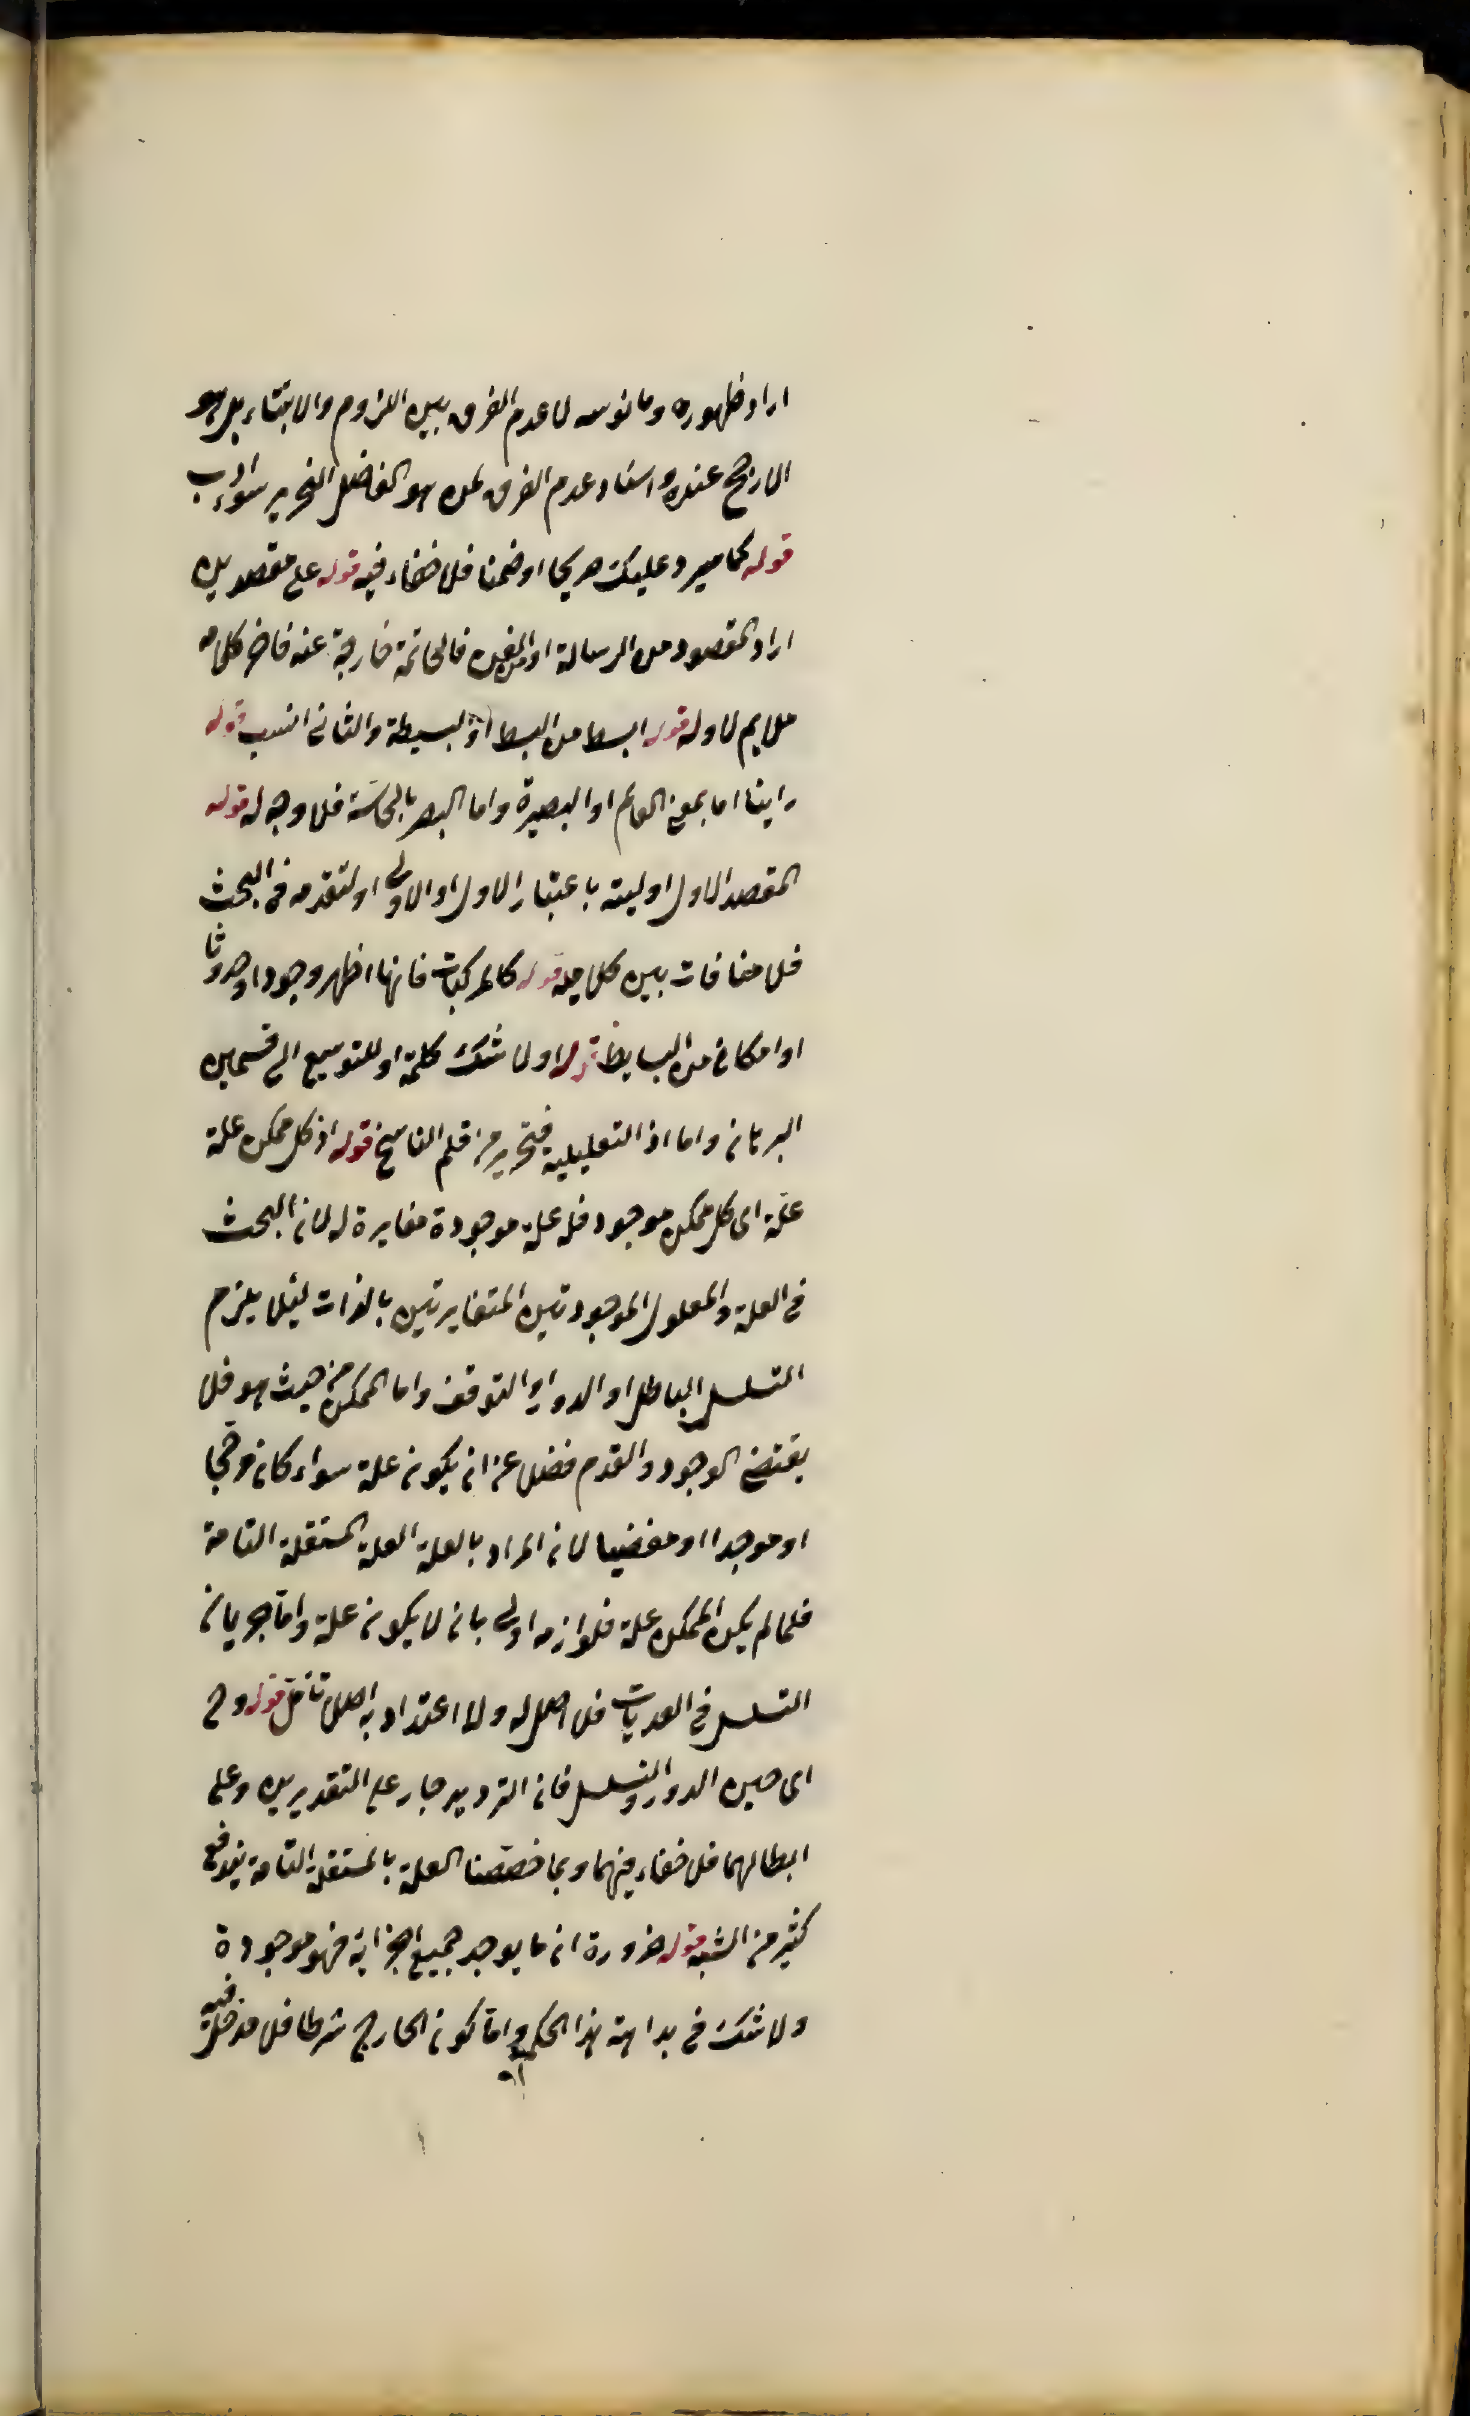 اراد ظهوره ومانوسه لا عدم الفرق بين اللزوم والابتناء بل هو
الارجح عنده واسناد عدم الفرق لمن هو الفاضل النحرير سوء ادب
قوله كما سيرد عليك صريحا او ضمنا فلا خفاء فيه قوله على مقصدين
اراد المقصود من الرسالة او من الفن فالخاتمة خارجة عنه فاخر كلامه
ملايم لاوله قوله ابسط من البسط او البسيطة والثاني انسب قوله
راينا اما بمعنى العلم او البصيرة واما البصر بالحاسة فلا وجه له قوله
المقصد الاول اوليته باعتبار الاول او الاولى او لتقدمه في البحث
فلا منافات بين كلاميه قوله كالمركبات فانها اظهر وجودا وحدوثا
او امكانا من البسايط قوله او لا شك كلمة او للتوسيع الى قسمين
البرهان واما اذ التعليلية فتحرير من قلم الناسخ قوله اذ كل ممكن علة
علة اى كل ممكن موجود فله علة موجودة مغايرة له لان البحث
في العلة والمعلول الموجودتين المتغايرتين بالذات ليلا يلزم
التسلسل الباطل او الدور او التوقف واما الممكن من حيث هو فلا
يقتضى الوجود والقدم فضلا عن ان يكون علة سواء كان موجبا
او موجدا او مفضيا لان المراد بالعلة العلة المستقلة التامة
فلما لم يكن الممكن علة فلوازمه اولى بان لا يكون علة واما جريان
التسلسل في العدميات فلا اصل له ولا اعتداد به اصلا تامل قوله وح
اى حين الدور والتسلسل فان الترديد جار على التقديرين وعلى
ابطالهما فلا خفاء فيهما وبما خصصنا العلة بالمستقلة التامة يندفع
كثير من الشبه قوله ضرورة ان ما يوجد جميع اجزائه فهو موجودة
ولا شك في بداهة هذا الحكم واما كون الخارج شرطا فلا مدخل فيه